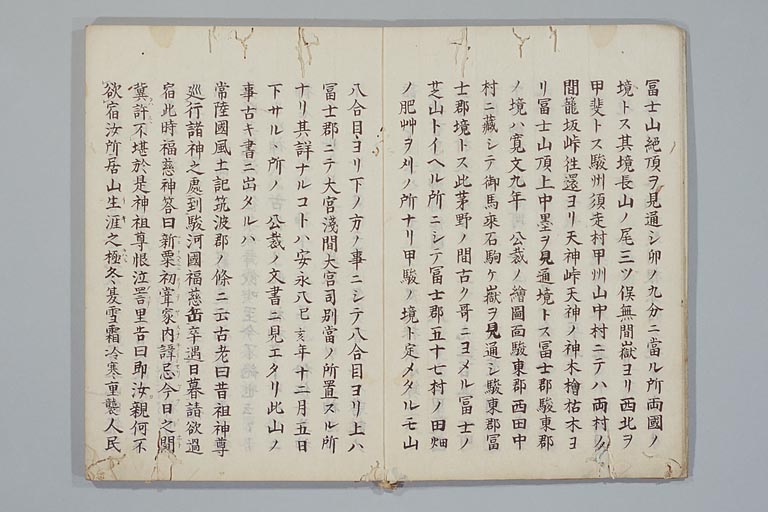 冨士山絶頂ヲ見通シ卯ノ九分ニ當ル所両國ノ
境トス其境長山ノ尾三ツ俣無間嶽ヨリ西北ヲ
甲斐トス駿州須走村甲州山中村ニテハ両村ノ
間籠坂峠往還ヨリ天神峠天神ノ神木檜枯木ヨ
リ冨士山頂上中墨ヲ見通境トス冨士郡駿東郡
ノ境ハ寛文九年 公裁ノ繪圖面駿東郡西田中
村ニ藏シテ御馬乘石駒ケ嶽ヲ見通シ駿東郡冨
士郡境トス此茅野ノ間古ク哥ニヨメル冨士ノ
芝山トイヘル所ニシテ冨士郡五十七村ノ田畑
ノ肥艸ヲ刈ノ所ナリ甲駿ノ境ト定メタルモ山
八合目ヨリ下ノ方ノ事ニシテ八合目ヨリ上ハ
冨士郡ニテ大宮淺間大宮司別當ノ所置スル所
ナリ其詳ナルコトハ安永八巳亥年十二月五日
下サルヽ所ノ 公裁ノ文書ニ見エタリ此山ノ
事古キ書ニ出タルハ
常陸國風土記筑波郡ノ條ニ云古老曰昔祖神尊
巡行諸神之處到駿河國福慈岳卒遇日暮請欲過
宿此時福慈神答曰新粟初甞家内諱忌今日之間
冀許不堪於是神祖尊恨泣詈里告曰即汝親何不
欲宿汝所居山生涯之極冬夏雪霜冷寒重襲人民